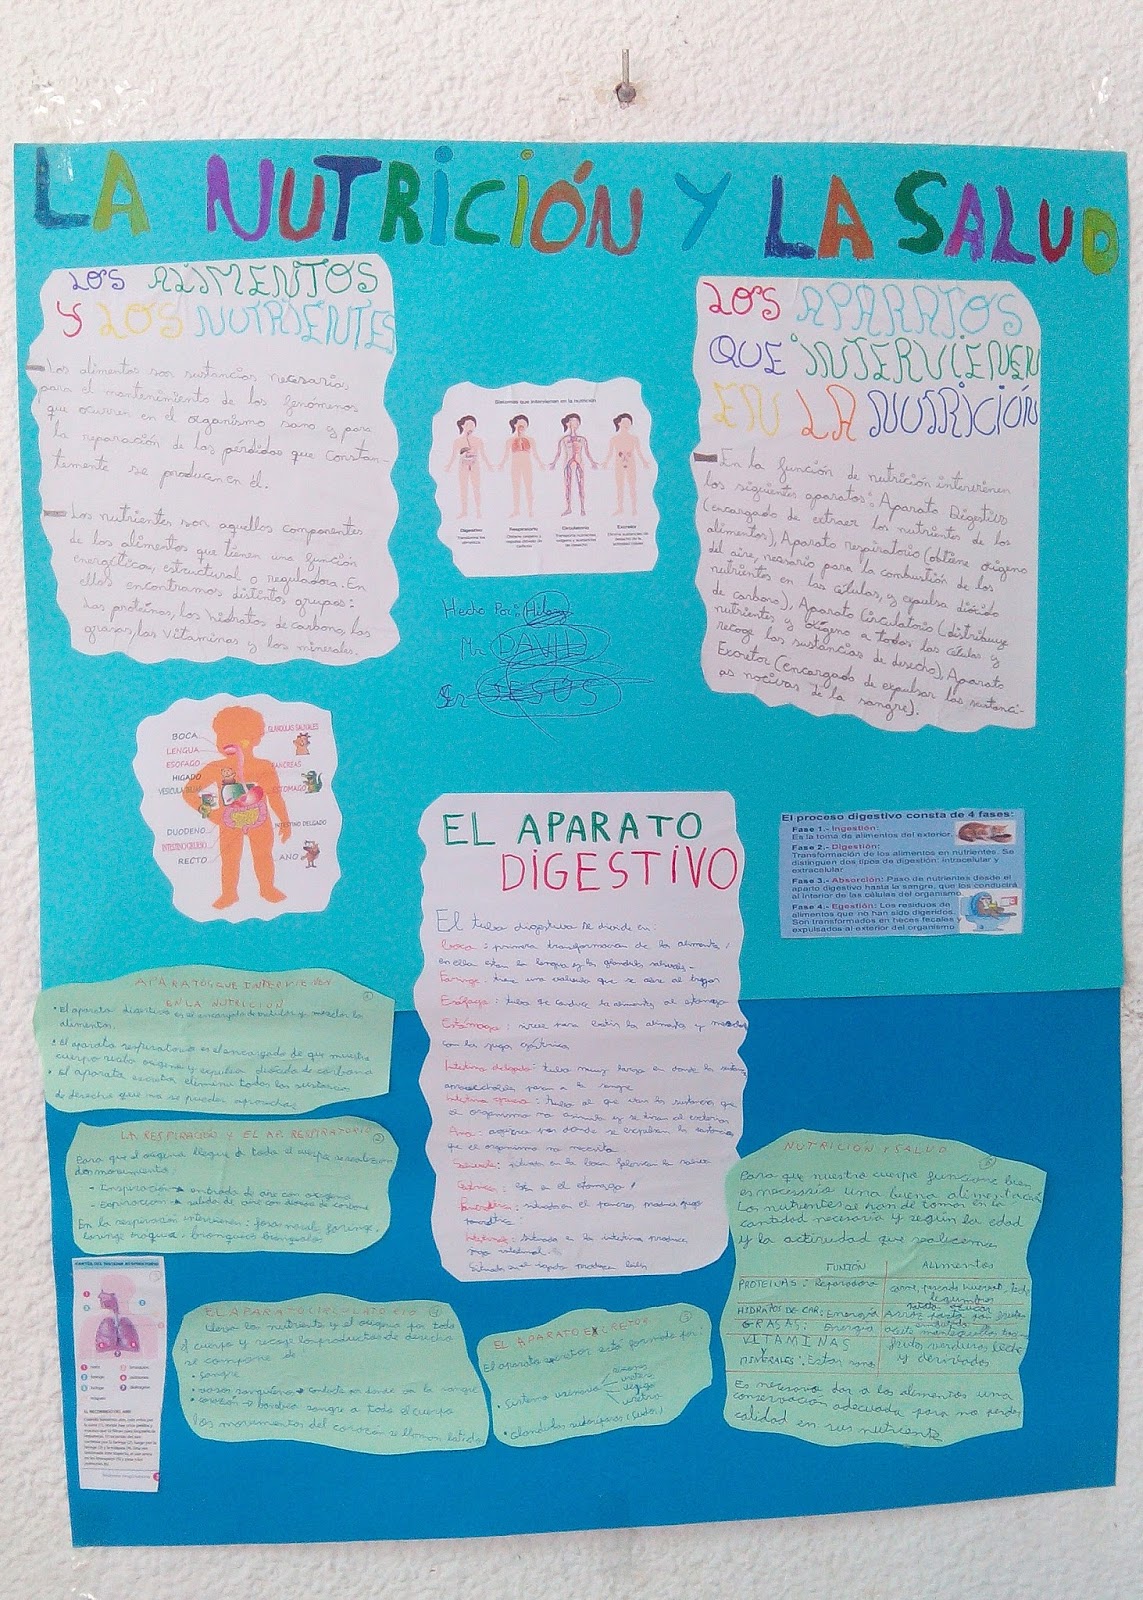 LA NUTRICIÓN Y LA SALUD
LOS ALIMENTOS
Y LOS NUTRIENTES
Los alimentos son sustancias necesarias
para el mantenimiento de los fenómenos
que ocurren en el organismo sano y para
la reparación de las pérdidas que constan-
temente se producen en él.
Los nutrientes son aquellos componentes
de los alimentos que tienen una función
energética, estructural o reguladora. En
ellos encontramos distintos grupos:
Las proteínas, los hidratos de carbono, las
grasas, las vitaminas y los minerales.
Sistemas que intervienen en la nutrición
Digestivo
Respiratorio
Circulatorio
Excretor
Hecho Por:
DAVID
JESÚS
LOS APARATOS
QUE INTERVIENEN
EN LA NUTRICIÓN
En la función de nutrición intervienen
los siguientes aparatos: Aparato Digestivo
(encargado de extraer los nutrientes de los
alimentos), Aparato respiratorio (obtiene oxígeno
del aire, necesario para la combustión de los
nutrientes en las células, y expulsa dióxido
de carbono), Aparato Circulatorio (distribuye
nutrientes y oxígeno a todas las células y
recoge las sustancias de desecho), Aparato
Excretor (encargado de expulsar las sustanci-
as nocivas de la sangre).
BOCA
LENGUA
ESOFAGO
HIGADO
VESICULA BILIAR
DUODENO
INTESTINO GRUESO
RECTO
GLANDULAS SALIVALES
PANCREAS
ESTOMAGO
INTESTINO DELGADO
ANO
EL APARATO
DIGESTIVO
El tubo digestivo se divide en:
Boca: primera transformación de los alimentos,
en ella están la lengua y las glándulas salivales.
Faringe: tiene una válvula que se abre al tragar
Esófago: tubo que conduce los alimentos al estómago
Estómago: sirve para batir los alimentos y
con los jugos gástricos
Intestino delgado: tubo muy largo en donde las
aprovechables pasan a la sangre
Intestino grueso: tubo al que van las sustancias que
el organismo no
Ano: agujero por donde se expulsan las sustancias
que el organismo no necesita
situada en la boca fabrican la saliva
en el estómago
situada en el páncreas produce jugo
situada en el intestino produce
jugo intestinal
El proceso digestivo consta de 4 fases:
Fase 1.- Ingestión:
Es la toma de alimentos del exterior.
Fase 2.- Digestión:
Transformación de los alimentos en nutrientes. Se
distinguen dos tipos de digestión: intracelular y
extracelular
Fase 3.- Absorción: Paso de nutrientes desde el
aparto digestivo hasta la sangre, que los conducirá
al interior de las células del organismo.
Fase 4.- Egestión: Los residuos de
alimentos que no han sido digeridos.
Son transformados en heces fecales y
expulsados al exterior del organismo
APARATOS QUE INTERVIENEN
EN LA NUTRICIÓN
• El aparato digestivo es el encargado de
alimentos.
• El aparato respiratorio es el encargado de que nuestro
cuerpo reciba oxígeno y expulse dióxido de carbono
• El aparato excretor elimina todas las sustancias
de desecho que no se pueden aprovechar
LA RESPIRACIÓN Y EL AP. RESPIRATORIO 2
Para que el oxígeno llegue a todo el cuerpo se realizan
dos movimientos:
- Inspiración → entrada de aire con oxígeno
- Espiración → salida de aire con dióxido de carbono
En la respiración intervienen: fosas nasal, faringe,
laringe, traquea, bronquios, bronquiolos
EL APARATO CIRCULATORIO 4
Lleva los nutrientes y el oxígeno por todo
el cuerpo y recoge los productos de desecho
se compone de:
• sangre
• vasos sanguíneos → conductos por donde va la sangre
• corazón → bombea sangre a todo el cuerpo
los movimientos del corazon se llaman latidos
EL APARATO EXCRETOR
El aparato excretor está formado por:
• sistema urinario
riñones
uréteres
vejiga
uretra
• Glándulas sudoríparas (sudor)
NUTRICIÓN Y SALUD
Para que nuestro cuerpo funcione bien
es necesario una buena alimentación
Los nutrientes se han de tomar en la
cantidad necesaria y según la edad
y la actividad que realicemos
FUNCIÓN Alimentos
PROTEINAS: Reparadora carne, pescado, huevos, leche
legumbres
HIDRATOS DE CAR: Energía Arroz, pasta, pan,
GRASAS: Energía aceite, mantequilla,
VITAMINAS
Y
MINERALES: Estar sano frutas, verduras, leche
y derivados
Es necesario dar a los alimentos una
conservación adecuada para no perder
calidad en sus nutrientes